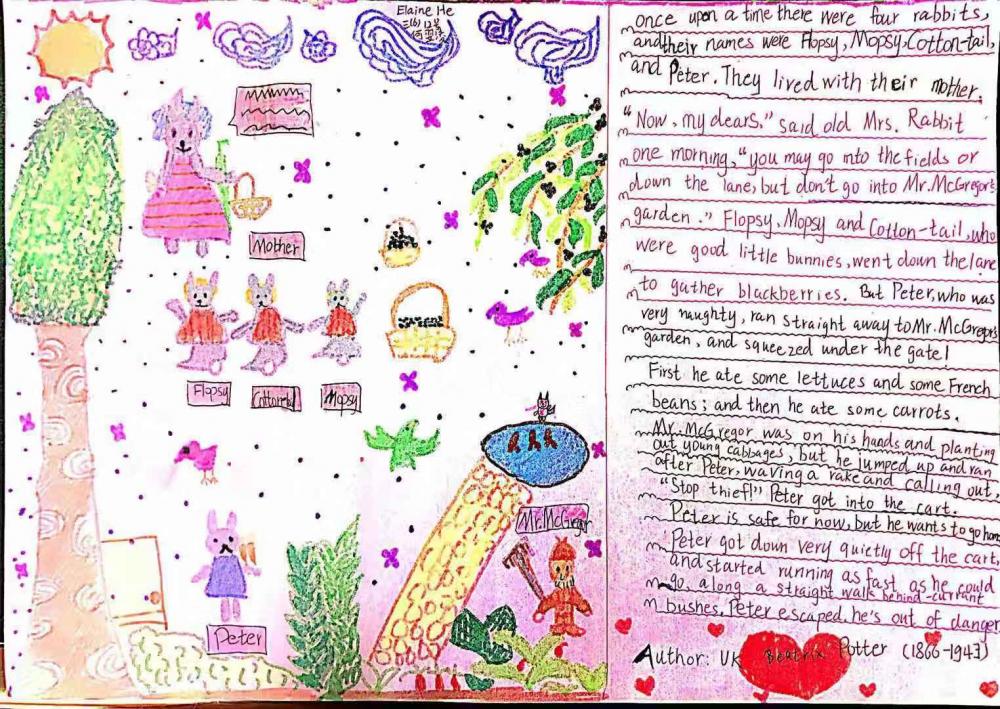 Elaine He
Mother
Flopsy
Mopsy
Mr.McGregor
Peter
once upon a time there were four rabbits,
and their names were Flopsy, Mopsy, Cotton-tail,
and Peter. They lived with their mother.
"Now, my dears," said old Mrs. Rabbit
one morning, "you may go into the fields or
down the lane, but don't go into Mr.McGregor's
garden." Flopsy, Mopsy and Cotton-tail, who
were good little bunnies, went down the lane
to gather blackberries. But Peter, who was
very naughty, ran straight away to Mr.McGregor's
garden, and squeezed under the gate!
First he ate some lettuces and some French
beans; and then he ate some carrots.
Mr. McGregor was on his hands and planting
out young cabbages, but he jumped up and ran
after Peter, waving a rake and calling out.
"Stop thief!" Peter got into the cart.
Peter is safe for now, but he wants to go hom
Peter got down very quietly off the cart,
and started running as fast as he could
go, along a straight walk behind currant
bushes. Peter escaped, he's out of danger
Author: UK Beatrix Potter (1866-1943)